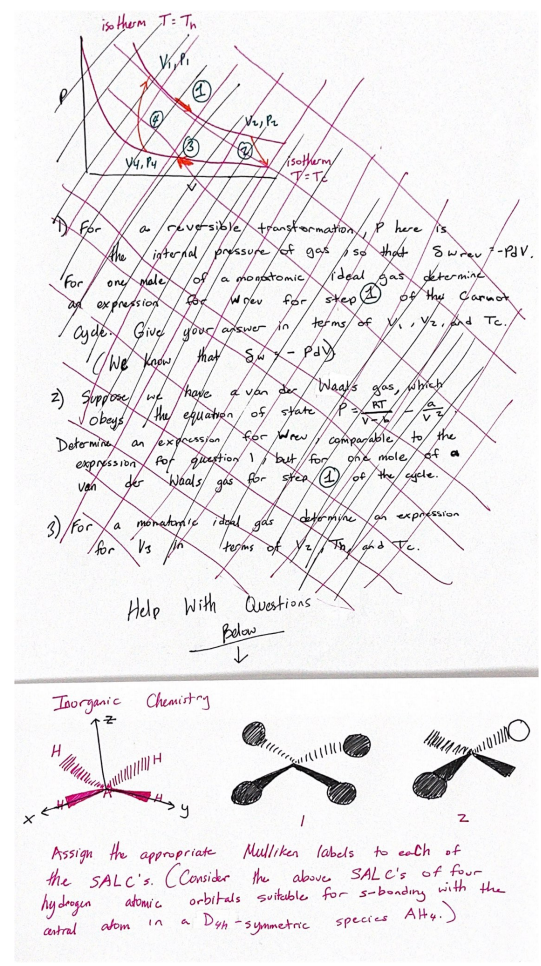 isotherm T=Th
V1,P1
1
P
V2,P2
4
3
2
V4,P4
isotherm
T=Tc
V
1) For a reversible transformation, P here is
the internal pressure of gas, so that δwrev = -PdV.
For one mole of a monatomic ideal gas determine
an expression for wrev for step 1 of the Carnot
cycle. Give your answer in terms of V1, V2, and Tc.
(We know that δw = - PdV)
2) Suppose we have a van der Waals gas, which
obeys the equation of state P = RT/V-b - a/V²
Determine an expression for wrev, comparable to the
expression for question 1, but for one mole of a
van der Waals gas for step 1 of the cycle.
3) For a monatomic ideal gas determine an expression
for V3 in terms of V2, Th, and Tc.
Help With Questions
Below
↓
Inorganic Chemistry
z
H H
H A H
x y
1 2
Assign the appropriate Mulliken labels to each of
the SALC's. (Consider the above SALC's of four
hydrogen atomic orbitals suitable for s-bonding with the
central atom in a D4h-symmetric species AH4.)